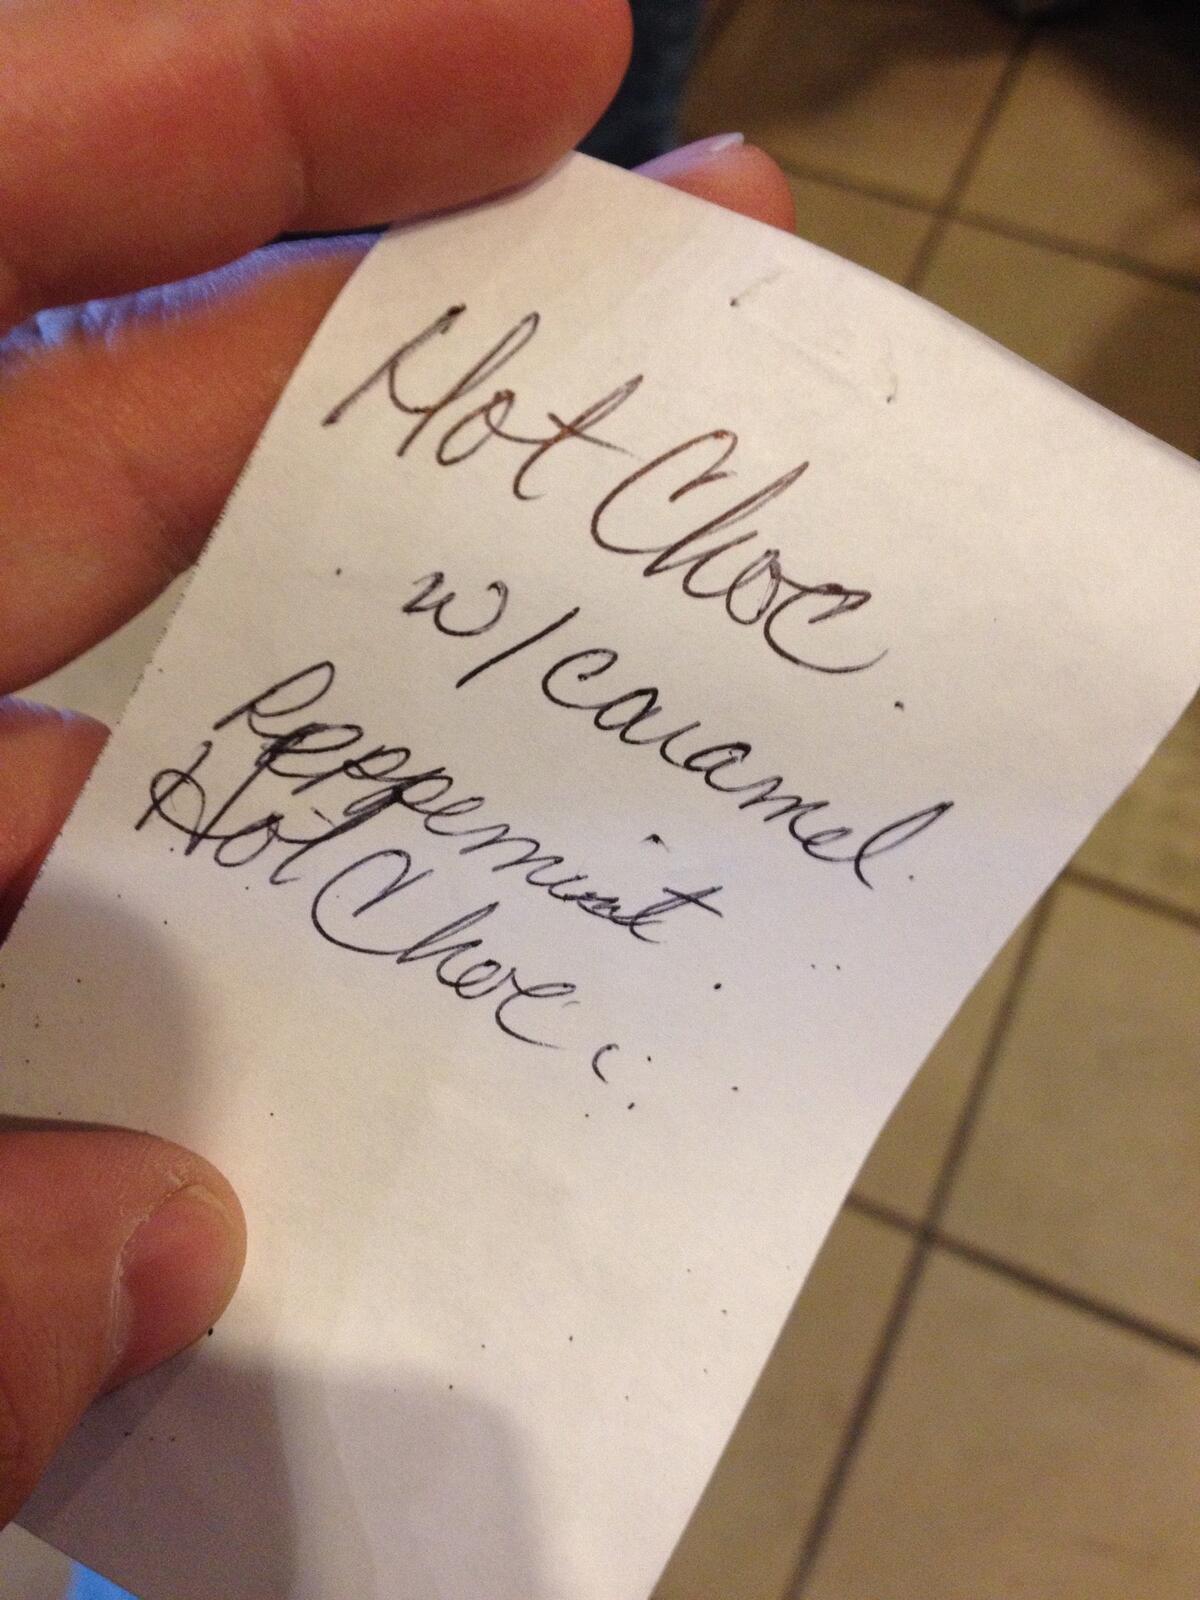 Hot Choc.
w/ caramel
Peppermint
Hot Choc.